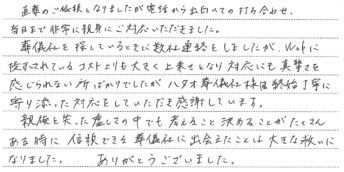 直葬のご依頼となりましたが電話から出向いての打ち合わせ、
当日まで非常に親身にご対応いただきました。
葬儀社を探しているときに数社連絡をしましたが、Webに
提示されているコストよりも大きく上乗せとなり対応にも真摯さを
感じられない所ばかりでしたがハタオ葬儀社様は終始丁寧に
寄り添った対応をしていただき感謝しています。
親族を失った虚しさの中でも考えること決めることがたくさん
ある時に信頼できる葬儀社に出会えたことは大きな救いに
なりました。 ありがとうございました。